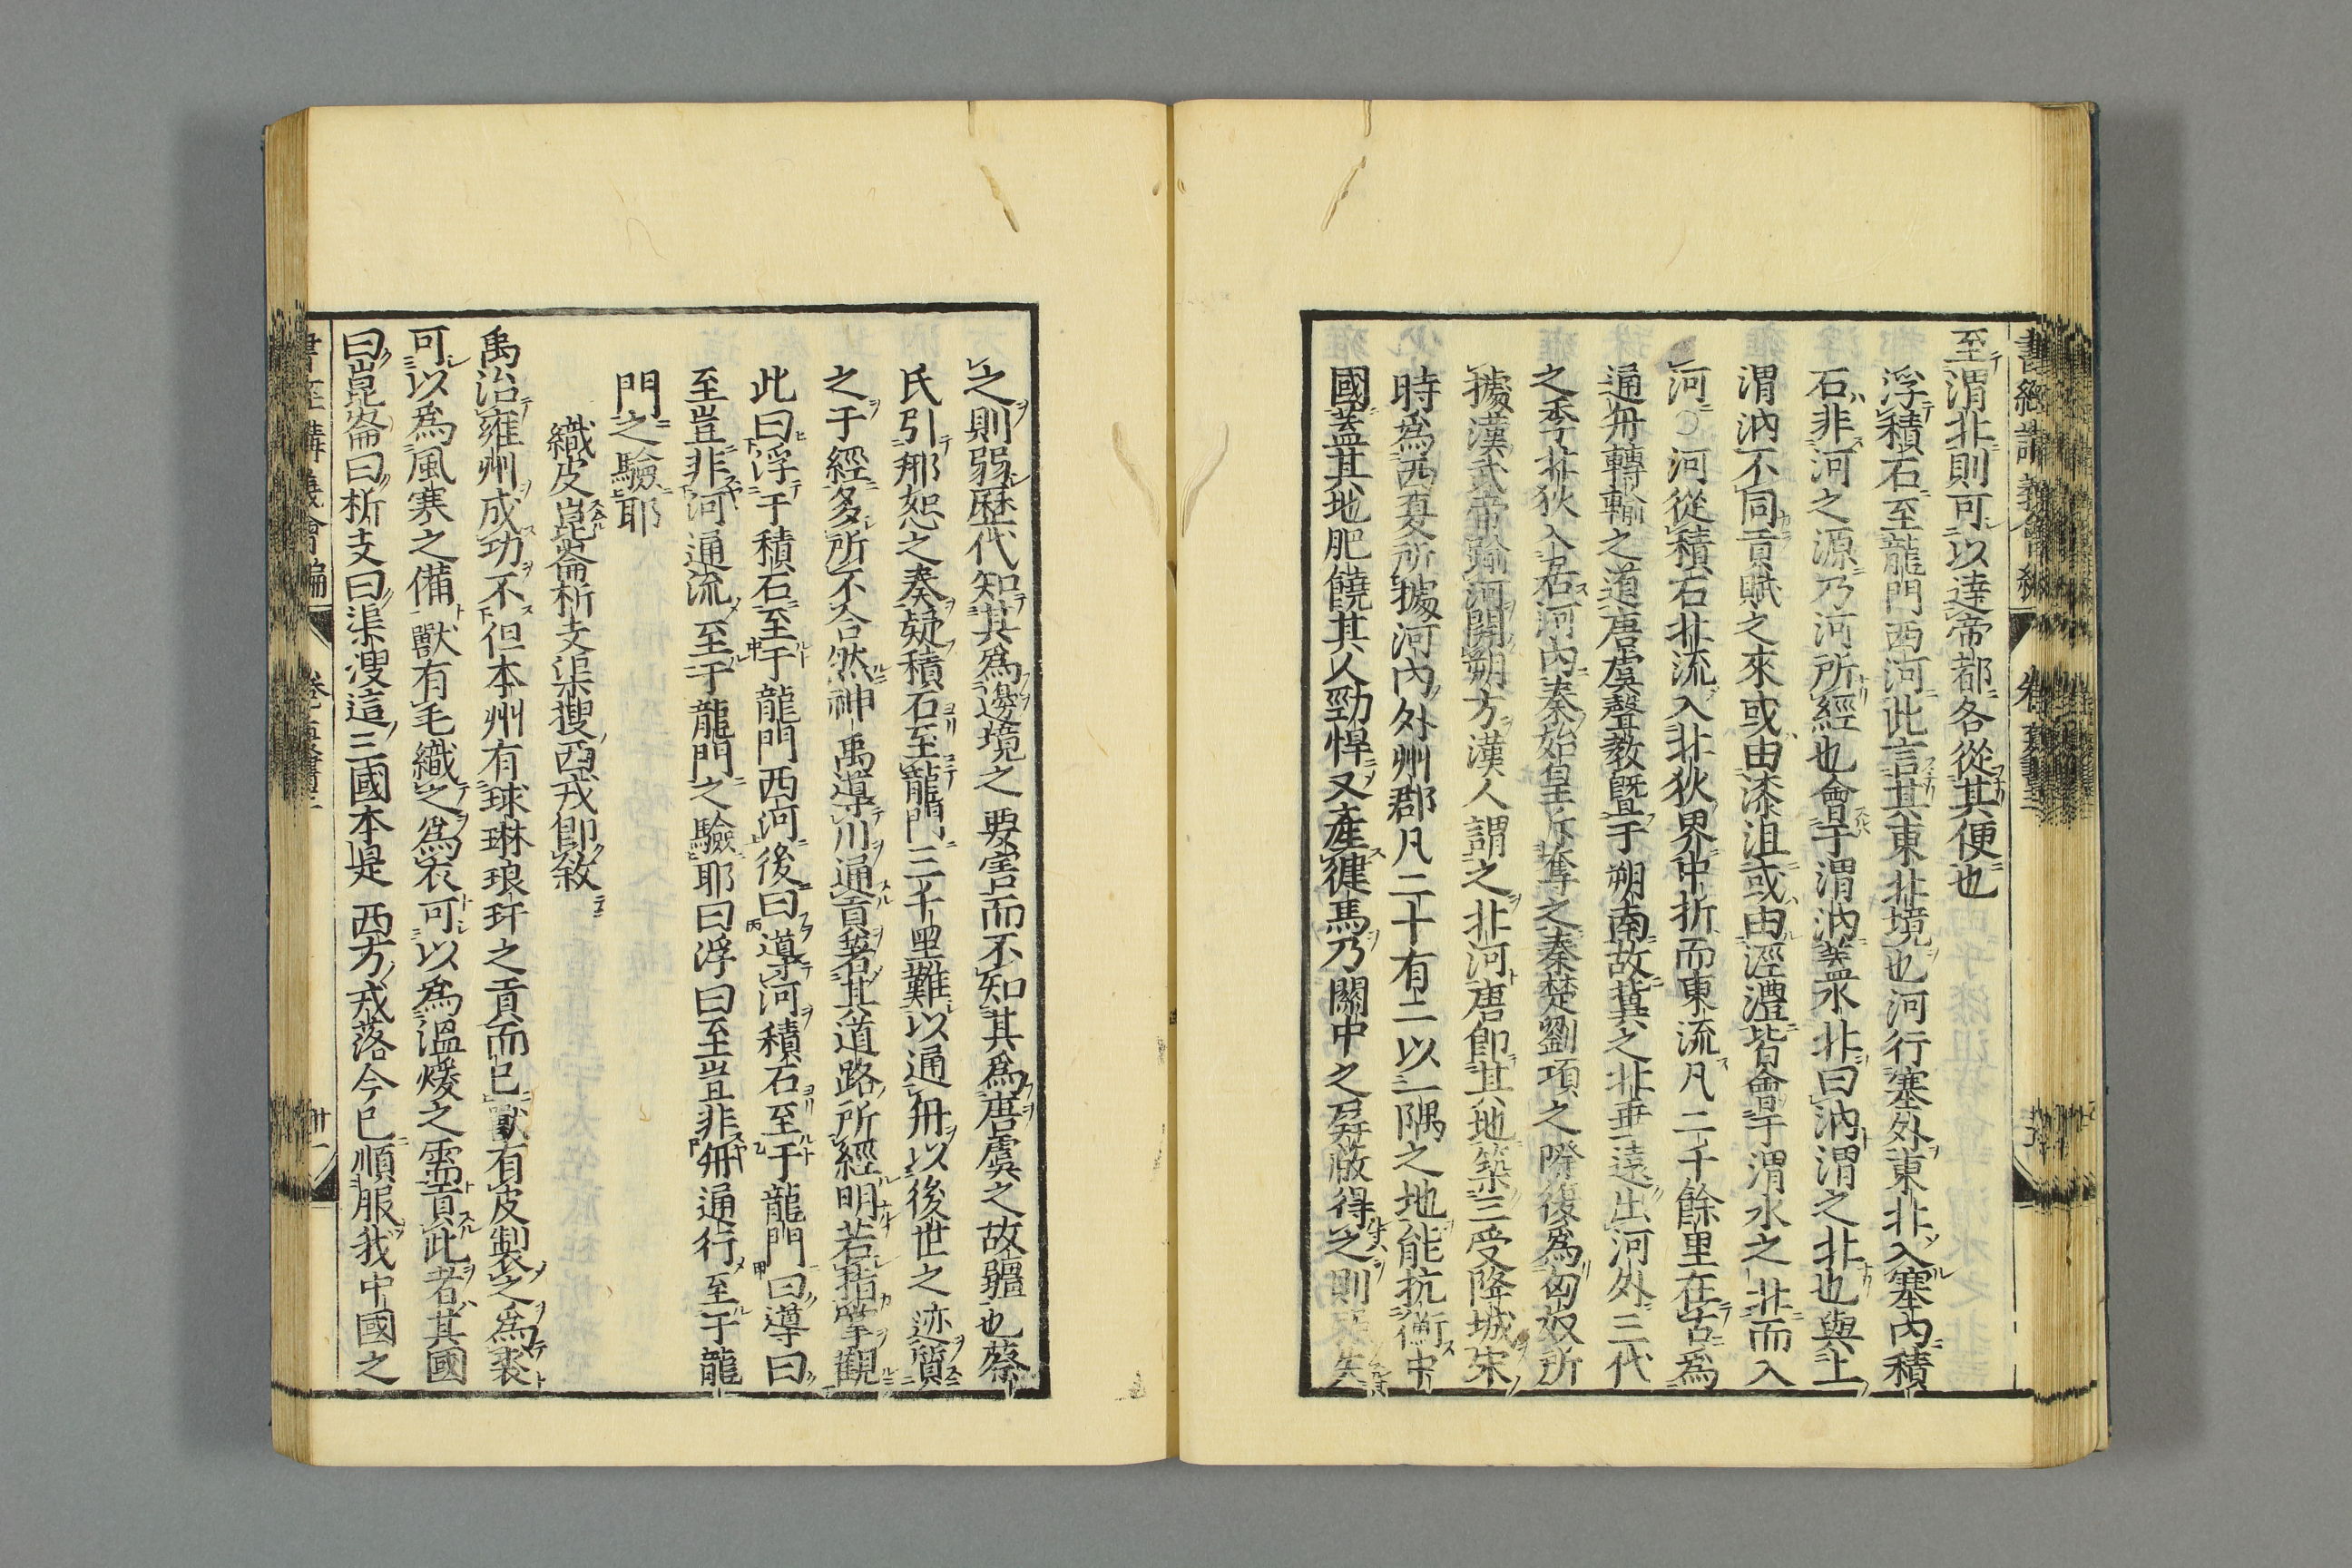 至渭北則可以達帝都各從其便也
浮積石至龍門西河此言其東北境也河行塞外東北入塞内積
石非河之源乃河所經也會于渭汭蓋水北曰汭渭之北也與上
渭汭不同貢賦之來或由漆沮或由涇灃皆會于渭水之北而入
河〇河從積石北流入北狄界中折而東流凡二千餘里在古為
通舟轉輸之道唐虞聲教曁于朔南故冀之北垂遠出河外三代
之季北狄入居河内秦始皇斥奪之秦楚劉項之際復為匈奴所
據漢武帝踰河開朔方漢人謂之北河唐即其地築三受降城宋
時為西夏所據河内外州郡凡二十有二以一隅之地能抗衡中
國蓋其地肥饒其人勁悍又產健馬乃關中之屏蔽得之則
之則弱歴代知其為邊境之要害而不知其為唐虞之故疆也蔡
氏引邢恕之奏疑積石至龍門三千里難以通舟以後世之迹質
之于經多所不合然神禹導川通貢著其道路所經明若指掌觀
此曰浮于積石至于龍門西河後曰導河積石至于龍門曰導曰
至豈非河通流至于龍門之驗耶曰浮曰至豈非舟通行至于龍
門之驗耶
織皮崑崙析支渠搜西戎即敘
禹治雍州成功不但本州有球琳琅玕之貢而已獸有皮製之為裘
可以為風寒之備獸有毛織之為衣可以為溫煖之需貢此者其國
曰崑崙曰析支曰渠溲這三國本是西方戎落今已順服我中國之
書經講義會編
卷